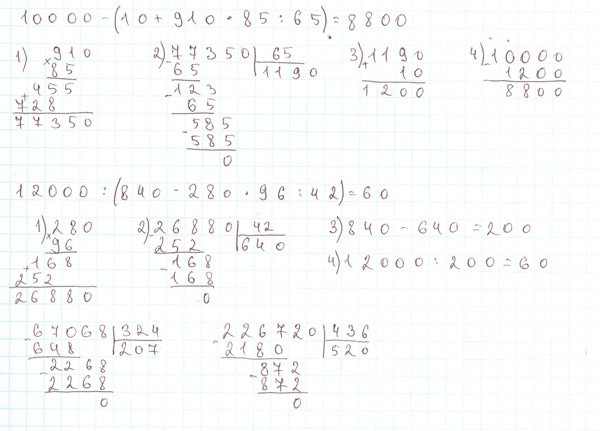 10000-(10+910·85:65)=8800
1) ×910 2) -77350 | 65 3) +1190 4) -10000
85 65 1190 10 1200
+455 -123 1200 8800
728 65
77350 -585
585
0
12000:(840-280·96:42)=60
1) ×280 2) -26880 | 42 3) 840-640=200
96 252 640
+168 -168 4) 12000:200=60
252 168
26880 0
-67068 | 324 -226720 | 436
648 207 2180 520
-2268 -872
2268 872
0 0